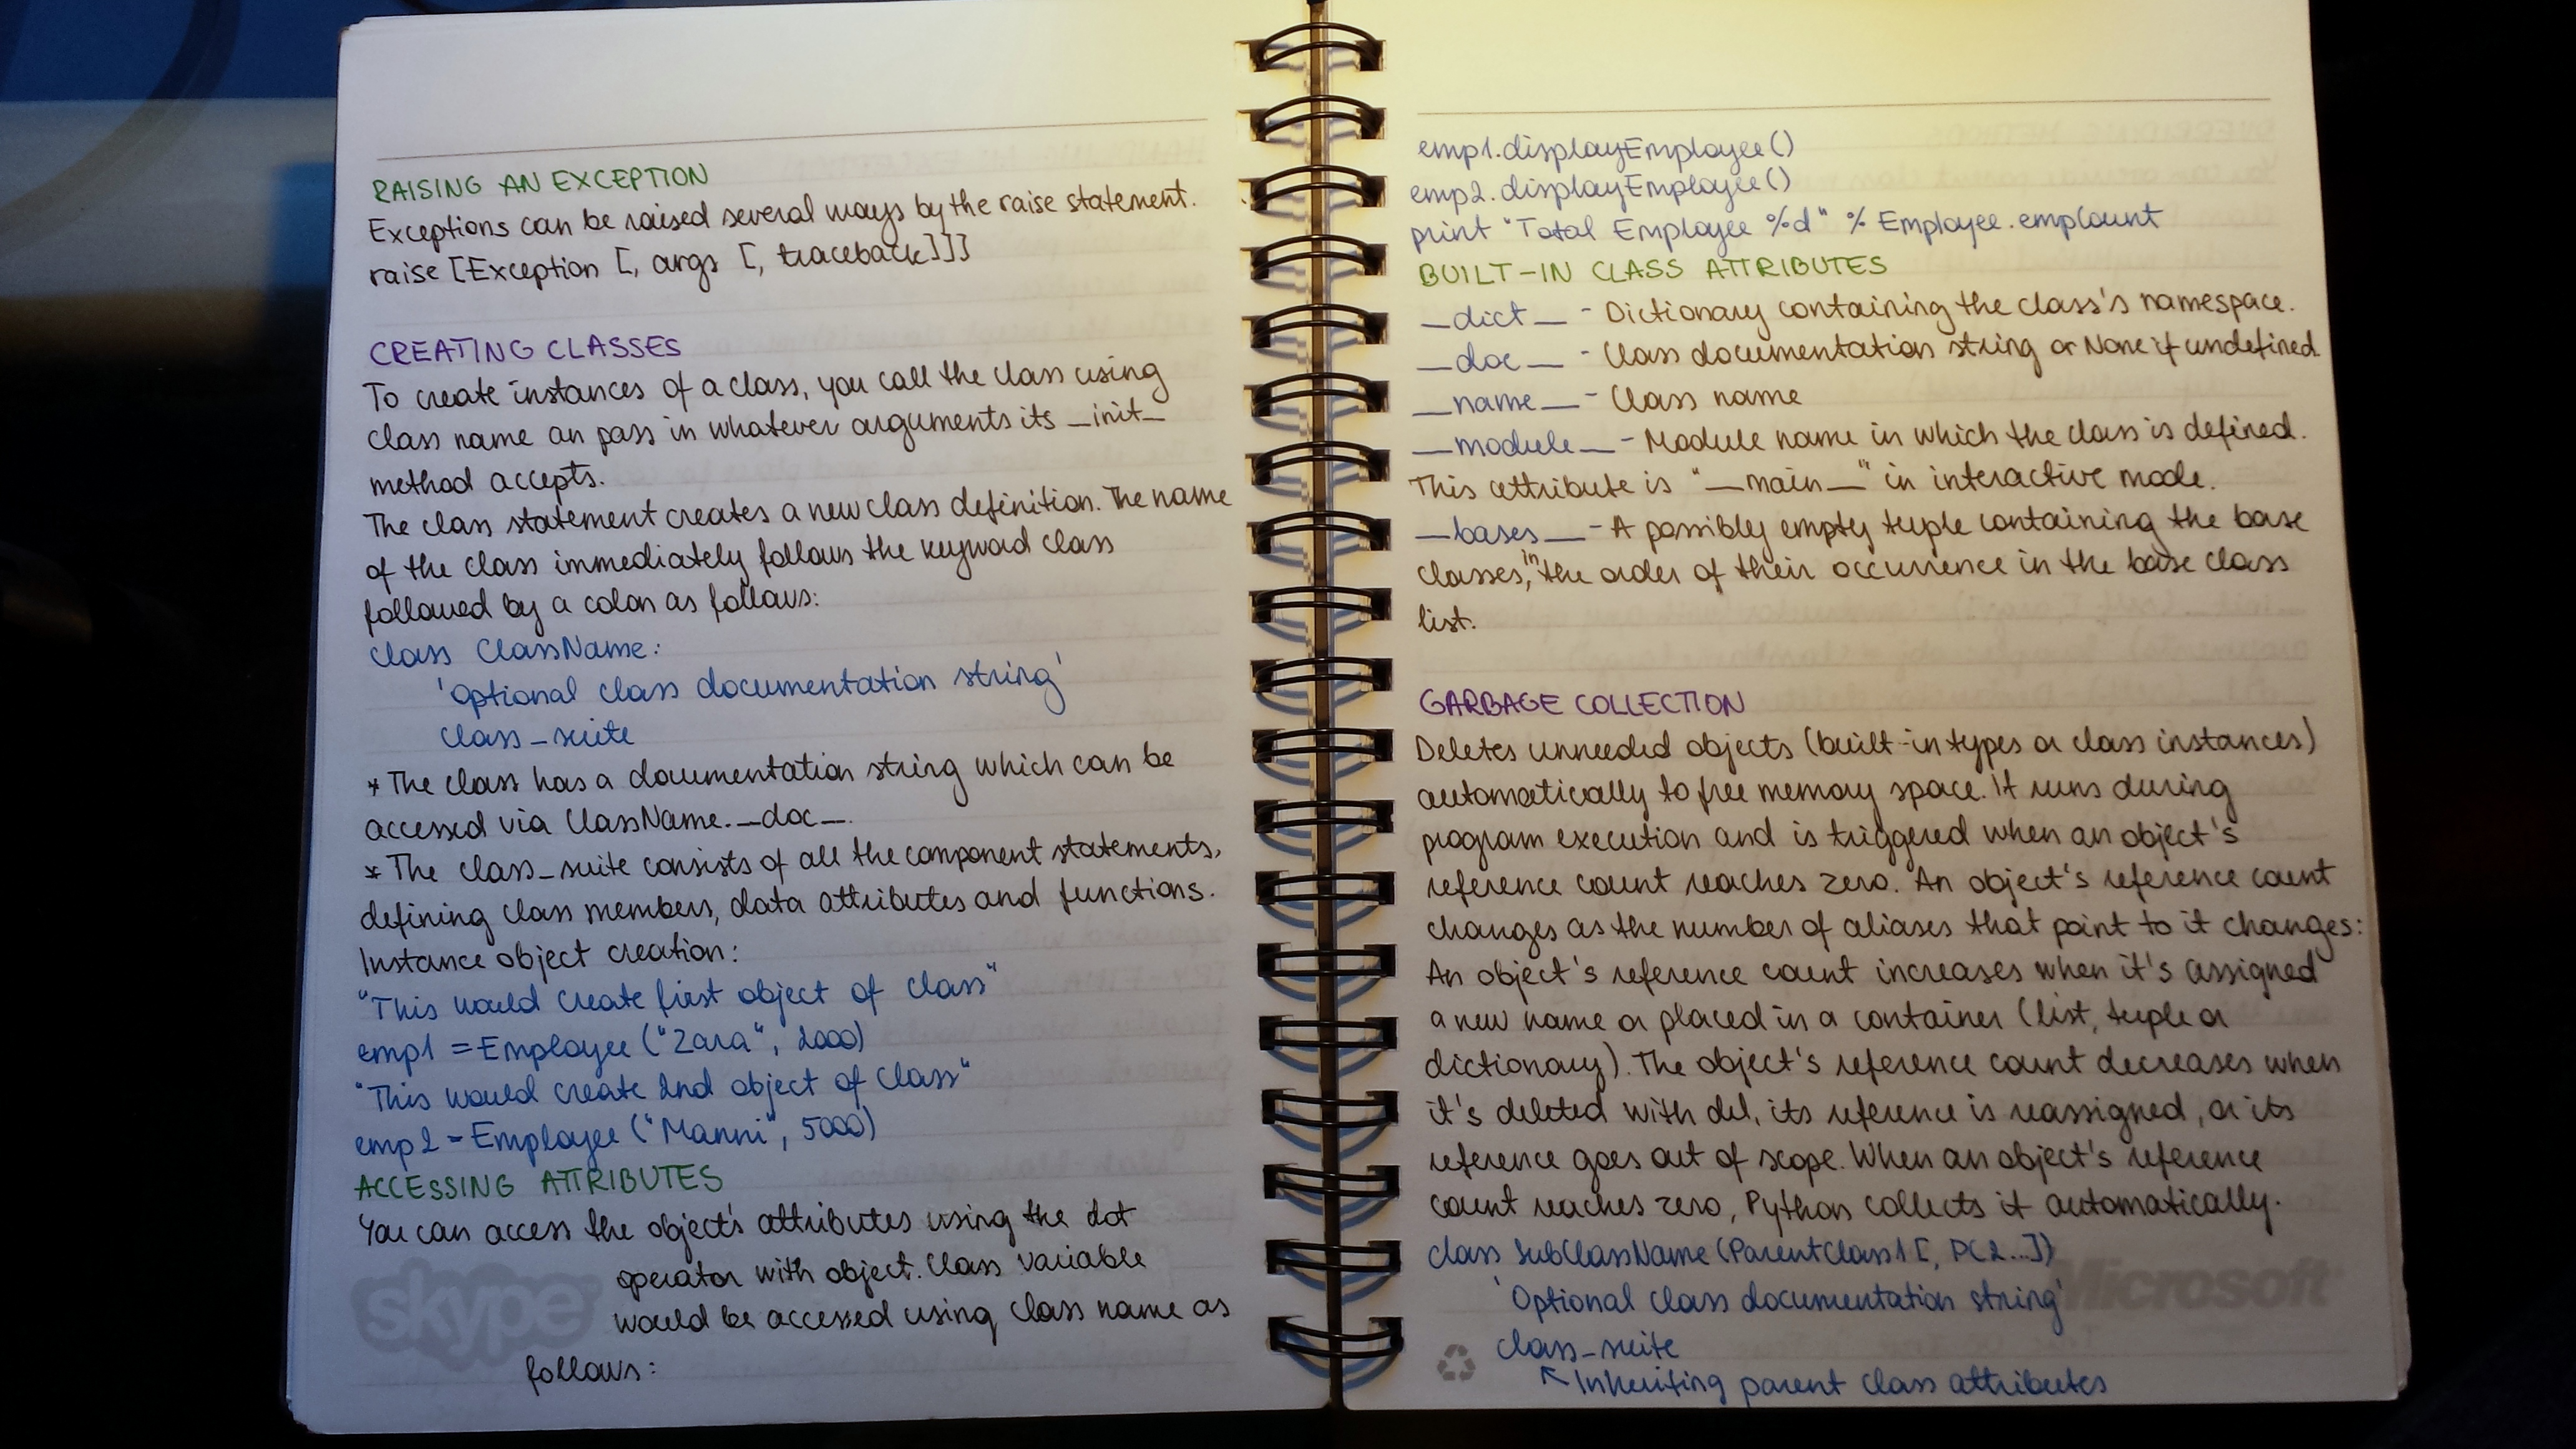 RAISING AN EXCEPTION
Exceptions can be raised several ways by the raise statement.
raise [Exception [, args [, traceback]]]
CREATING CLASSES
To create instances of a class, you call the class using
class name an pass in whatever arguments its _init_
method accepts.
The class statement creates a new class definition. The name
of the class immediately follows the keyword class
followed by a colon as follows:
class ClassName:
'Optional class documentation string'
class_suite
* The class has a documentation string which can be
accessed via ClassName.__doc__.
* The class_suite consists of all the component statements,
defining class members, data attributes and functions.
Instance object creation:
"This would create first object of class"
emp1 = Employee ("Zara", 2000)
"This would create 2nd object of class"
emp2 = Employee ("Manni", 5000)
ACCESSING ATTRIBUTES
You can access the object's attributes using the dot
operator with object. Class variable
would be accessed using class name as
follows:
skype
emp1.displayEmployee()
emp2.displayEmployee()
print "Total Employee %d" % Employee.empCount
BUILT-IN CLASS ATTRIBUTES
__dict__ - Dictionary containing the class's namespace.
__doc__ - Class documentation string or None if undefined.
__name__ - Class name
__module__ - Module name in which the class is defined.
This attribute is "__main__" in interactive mode.
__bases__ - A possibly empty tuple containing the base
classes, in the order of their occurrence in the base class
list.
GARBAGE COLLECTION
Deletes unneeded objects (built-in types or class instances)
automatically to free memory space. It runs during
program execution and is triggered when an object's
reference count reaches zero. An object's reference count
changes as the number of aliases that point to it changes:
An object's reference count increases when it's assigned
a new name or placed in a container (list, tuple or
dictionary). The object's reference count decreases when
it's deleted with del, its reference is reassigned, or its
reference goes out of scope. When an object's reference
count reaches zero, Python collects it automatically.
class SubClassName (ParentClass1 [, PC2...])
'Optional class documentation string'
class_suite
↖ Inheriting parent class attributes
Microsoft